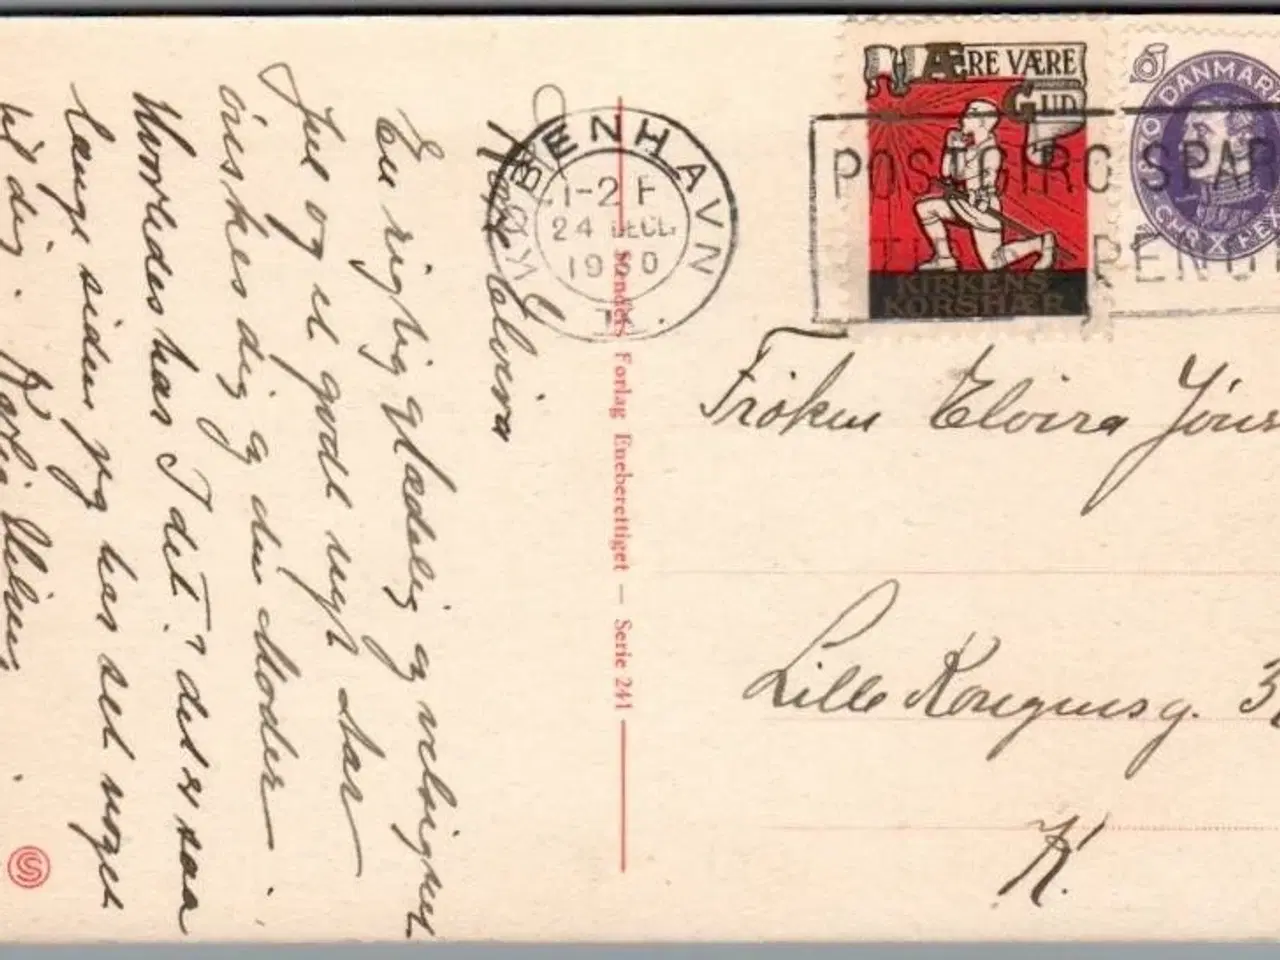 Kære Elvira
En rigtig glædelig og velsignet
Jul og et godt nyt Aar
önskes dig og din Moder.
Hvorledes har I det? det er saa
længe siden jeg har set noget
til dig. Kærlig Hilsen
KØBENHAVN
1-2 F
24 DEC.
19 0
K.
ÆRE VÆRE
GUD
KIRKENS
KORSHÆR
DANMARK
CHR. X REX
POSTGIRO SPAR
TID PENGE
Sanders Forlag Eneberettiget — Serie 241
Fröken Elvira Jöns
Lille Kongensg. 3
K.
S